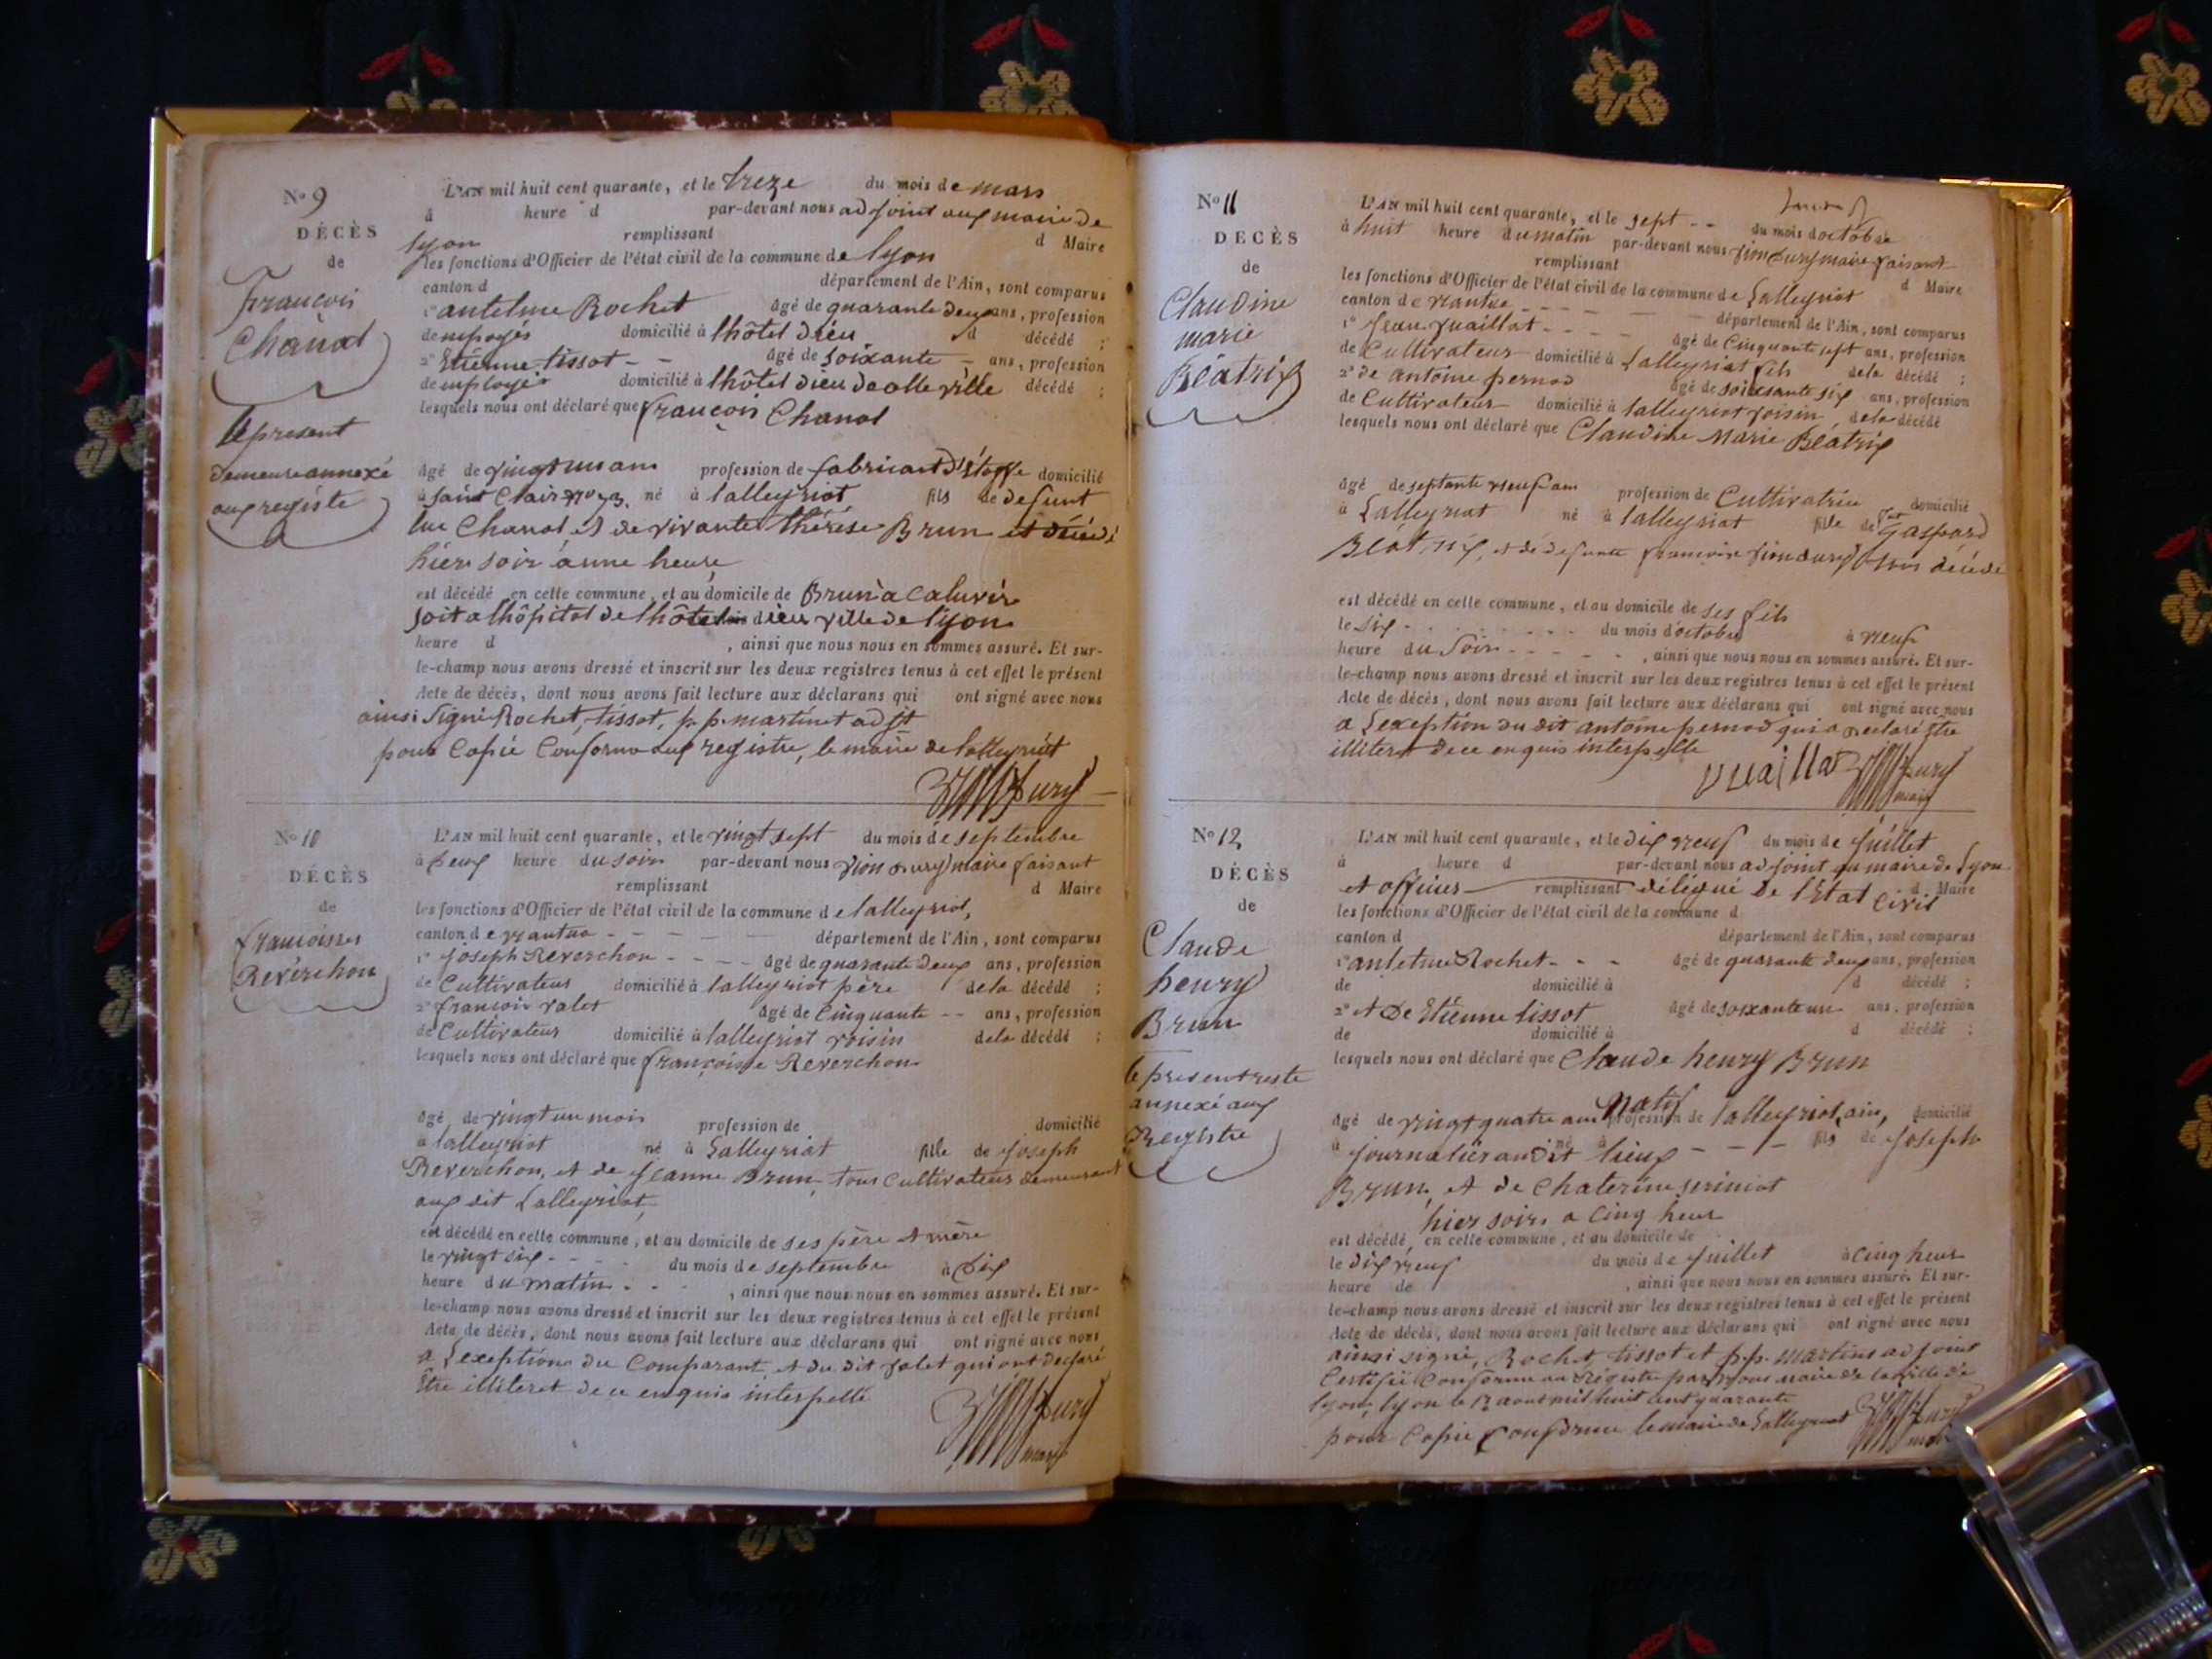 N° 9
DÉCÈS
de
François
Chanal
le present
demeure annexé
aux registe
L'AN mil huit cent quarante, et le treze du mois de mars
à heure d par-devant nous adjoint aux maire de
lyon remplissant d Maire
les fonctions d'Officier de l'état civil de la commune de lyon
canton d département de l'Ain, sont comparus
1° antelme Rochet âgé de quarante deux ans, profession
d'employés domicilié à lhôtel dieu d décédé ;
2° Etienne tissot - - âgé de soixante - ans, profession
d'employés domicilié à lhôtel dieu de dite ville décédé ;
lesquels nous ont déclaré que françois Chanal
âgé de vingt un ans profession de fabricant d'étoffe domicilié
à saint Clair n° né à lalleyriat fils de defunt
luc Chanal, et de vivante thérèse Brun est décédé
hièr soir à une heure
est décédé en cette commune, et au domicile de Brun à Caluire
soit a lhôpital de lhôtel dieu ville de lyon
heure d , ainsi que nous nous en sommes assuré. Et sur-
le-champ nous avons dressé et inscrit sur les deux registres tenus à cet effet le présent
Acte de décès, dont nous avons fait lecture aux déclarans qui ont signé avec nous
ainsi signé Rochet, tissot, p. p. martinet adjt
pour Copié Conforme aux registre, le maire de lalleyriat
N° 10
DÉCÈS
de
françoises
Reverchon
L'AN mil huit cent quarante, et le vingt sept du mois de septembre
à deux heure du soir par-devant nous vion dury maire faisant
remplissant d Maire
les fonctions d'Officier de l'état civil de la commune de lalleyriat,
canton de nantua - - - - département de l'Ain, sont comparus
1° joseph Reverchon - - - - âgé de quarante deux ans, profession
de Cultivateur domicilié à lalleyriat père de la décédé ;
2° françois valet âgé de Cinquante - - ans, profession
de Cultivateur domicilié à lalleyriat voisin de la décédé ;
lesquels nous ont déclaré que françoise Reverchon
âgé de vingt un mois profession de domicilié
à lalleyriat né à Lalleyriat fille de joseph
Reverchon, et de jeanne Brun, tous Cultivateurs demeurant
aux dit Lalleyriat,
est décédé en cette commune, et au domicile de ses père et mère
le vingt six - - - du mois de septembre à dix
heure du matin - - - , ainsi que nous nous en sommes assuré. Et sur-
le-champ nous avons dressé et inscrit sur les deux registres tenus à cet effet le présent
Acte de décès, dont nous avons fait lecture aux déclarans qui ont signé avec nous
a Lexeption du Comparant et du dit valet qui ont declaré
Etre illiteret de ce enquis interpellé
maire
N° 11
DÉCÈS
de
Claudine
marie
Béatrix
L'AN mil huit cent quarante, et le sept - - du mois d'octobre
à huit heure du matin par-devant nous vion dury maire faisant
remplissant d Maire
les fonctions d'Officier de l'état civil de la commune de Lalleyriat
canton de nantua - - - - département de l'Ain, sont comparus
1° jean vuaillat - - - - âgé de Cinquante sept ans, profession
de Cultivateur domicilié à Lalleyriat fils de la décédé ;
2° de antoine pernod âgé de soixsante six ans, profession
de Cultivateur domicilié à lalleyriat voisin de la décédé
lesquels nous ont déclaré que Claudine Marie Béatrix
âgé de septante neuf ans profession de Cultivatrice domicilié
à Lalleyriat né à lalleyriat fille de feu Gaspard
Béatrix, et de defunte francoise vion dury tous décédé
est décédé en cette commune, et au domicile de ses fils
le six - - - - du mois d'octobre à neuf
heure du Soir - - - - , ainsi que nous nous en sommes assuré. Et sur-
le-champ nous avons dressé et inscrit sur les deux registres tenus à cet effet le présent
Acte de décès, dont nous avons fait lecture aux déclarans qui ont signé avec nous
a Lexeption du dit antoine pernod qui a declaré être
illiteret de ce enquis interpellé
vuaillat
maire
N° 12
DÉCÈS
de
Claude
henry
Brun
le present reste
annexé aux
Registre
L'AN mil huit cent quarante, et le dix neuf du mois de juillet
à heure d par-devant nous adjoint au maire de lyon
et officier remplissant délégué de l'Etat civil d Maire
les fonctions d'Officier de l'état civil de la commune d
canton d département de l'Ain, sont comparus
1° antelme Rochet - - - âgé de quarante deux ans, profession
de domicilié à d décédé ;
2° et De Etienne tissot âgé de soixante un ans, profession
de domicilié à d décédé ;
lesquels nous ont déclaré que Claude henry Brun
âgé de vingt quatre ans natif profession de lalleyriat, ain, domicilié
à journalier audit né à lieux - - - fils de joseph
Brun, et de Chaterine seriniat
hier soir a cinq heur
est décédé, en cette commune, et au domicile de
le dix neuf du mois de juillet à cinq heur
heure de , ainsi que nous nous en sommes assuré. Et sur-
le-champ nous avons dressé et inscrit sur les deux registres tenus à cet effet le présent
Acte de décès, dont nous avons fait lecture aux déclarans qui ont signé avec nous
ainsi signé, Rochet, tissot et p. p. martins adjoint
Certifié Conforme au Registe par nous maire de la ville de
lyon, lyon le 12 aout mil huit cent quarante
pour Copié Conforme le maire de Lalleyriat